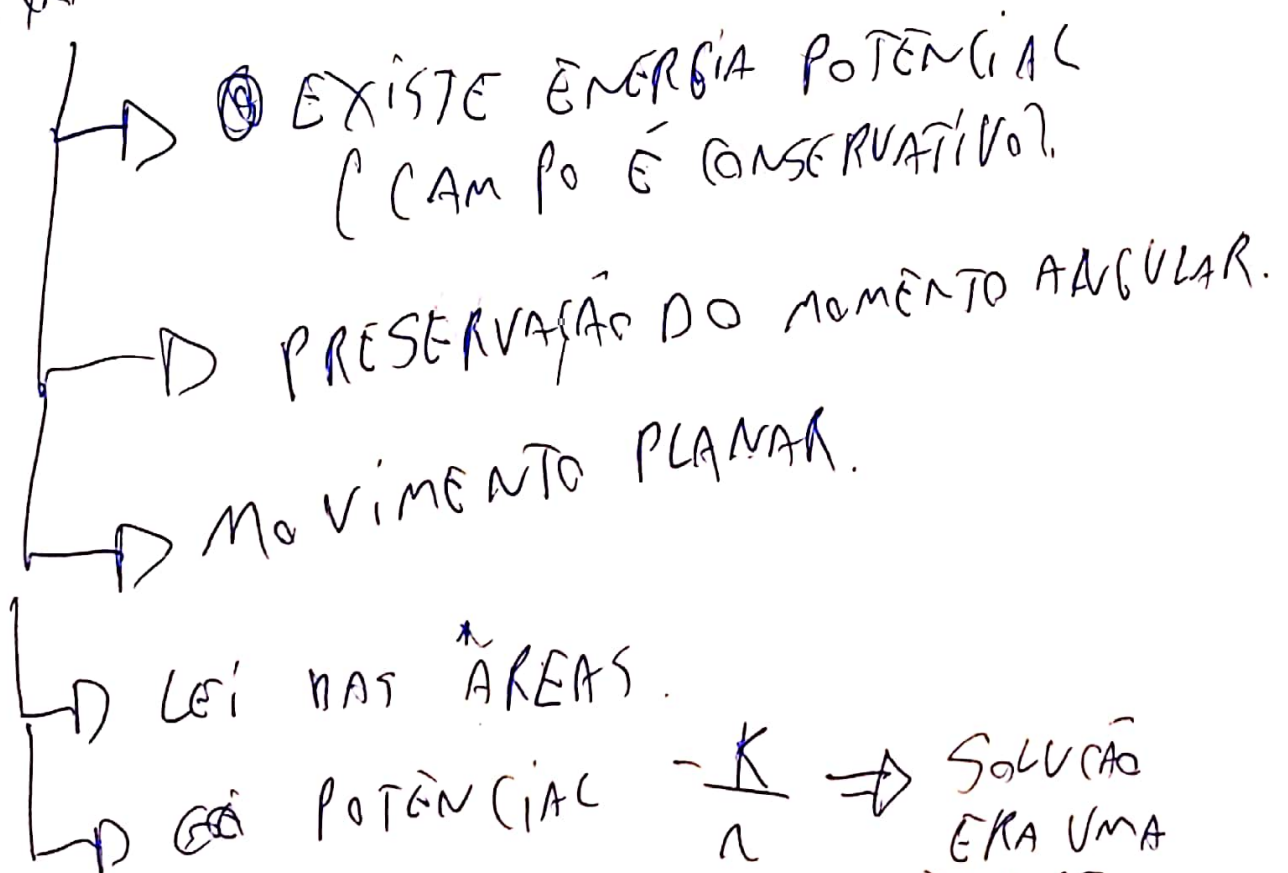 EXISTE ENERGIA POTENCIAL
(CAMPO É CONSERVATIVO).
PRESERVAÇÃO DO MOMENTO ANGULAR.
MOVIMENTO PLANAR.
LEI DAS ÁREAS.
POTENCIAL -K/r ⇒ SOLUÇÃO
ERA UMA